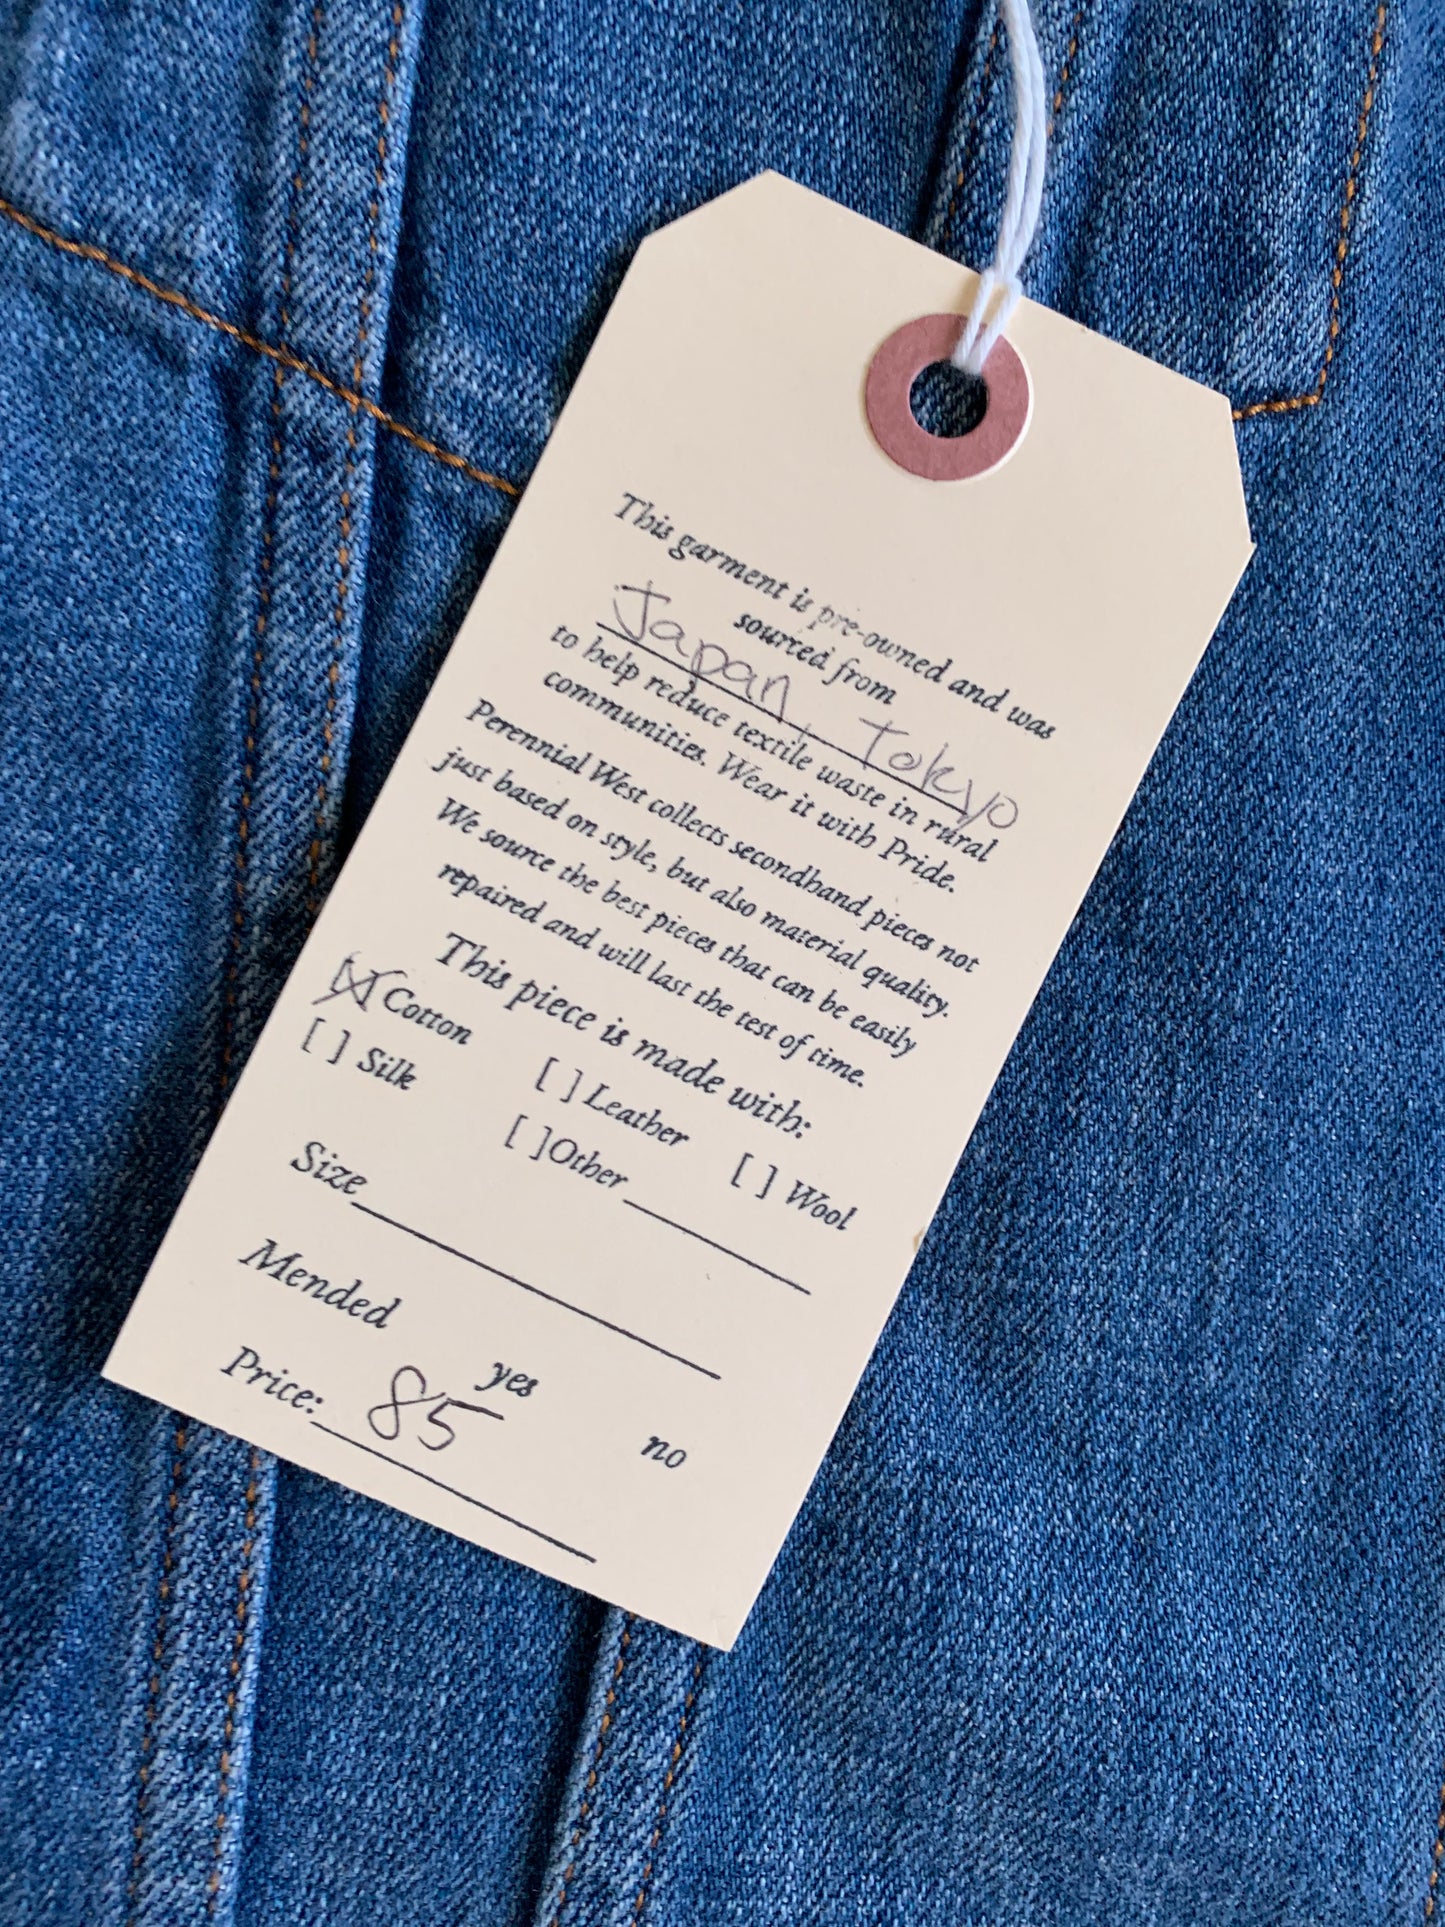 This garment is pre-owned and was
sourced from
Japan, Tokyo
to help reduce textile waste in rural
communities. Wear it with Pride.
Perennial West collects secondhand pieces not
just based on style, but also material quality.
We source the best pieces that can be easily
repaired and will last the test of time.
This piece is made with:
[X] Cotton [ ] Leather [ ] Wool
[ ] Silk [ ]Other
Size
Mended yes no
Price: 85